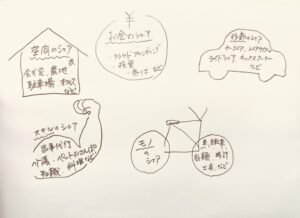 空間のシェア
会議室 農地
駐車場 オフィス
など
¥
お金のシェア
・クラウドファンディング
・投資
・寄付 など
移動のシェア
カーシェア、シェアサイクル
ライドシェア キックスクーター
など
スキルのシェア
家事代行
介護 ペットのさんぽ
転職 料理など
モノ
の
シェア
車、自転車
時計
工具、など